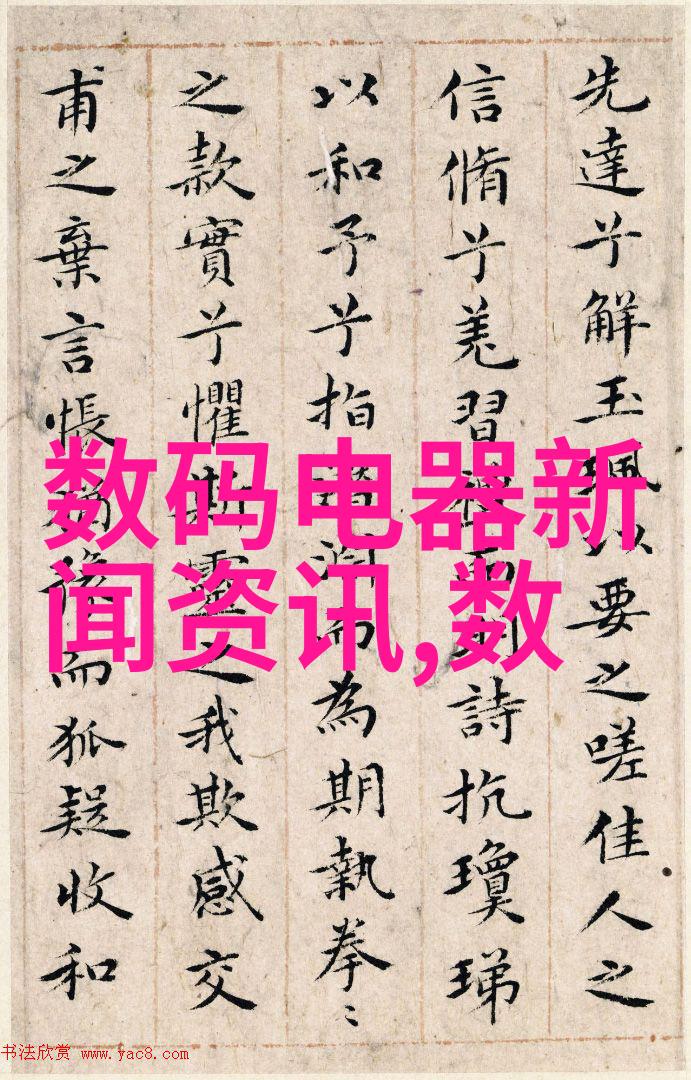 先達兮解玉珮以要之嗟佳人之
信脩兮羌習禮而明詩抗瓊珶
以和予兮指潛淵而為期執拳〻
之款實兮懼斯靈之我欺感交
甫之棄言悵猶豫而狐疑收和
数码电器新
闻资讯,数
书法欣赏 www.yac8.com